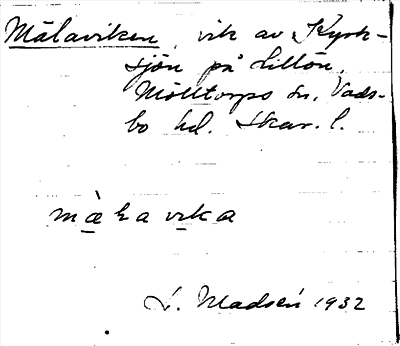 Målaviken, vik av Kyrk-
sjön på Lillön,
Mölltorps sn, Vads-
bo hd. Skar. l.
màlavika
L. Madsén 1932